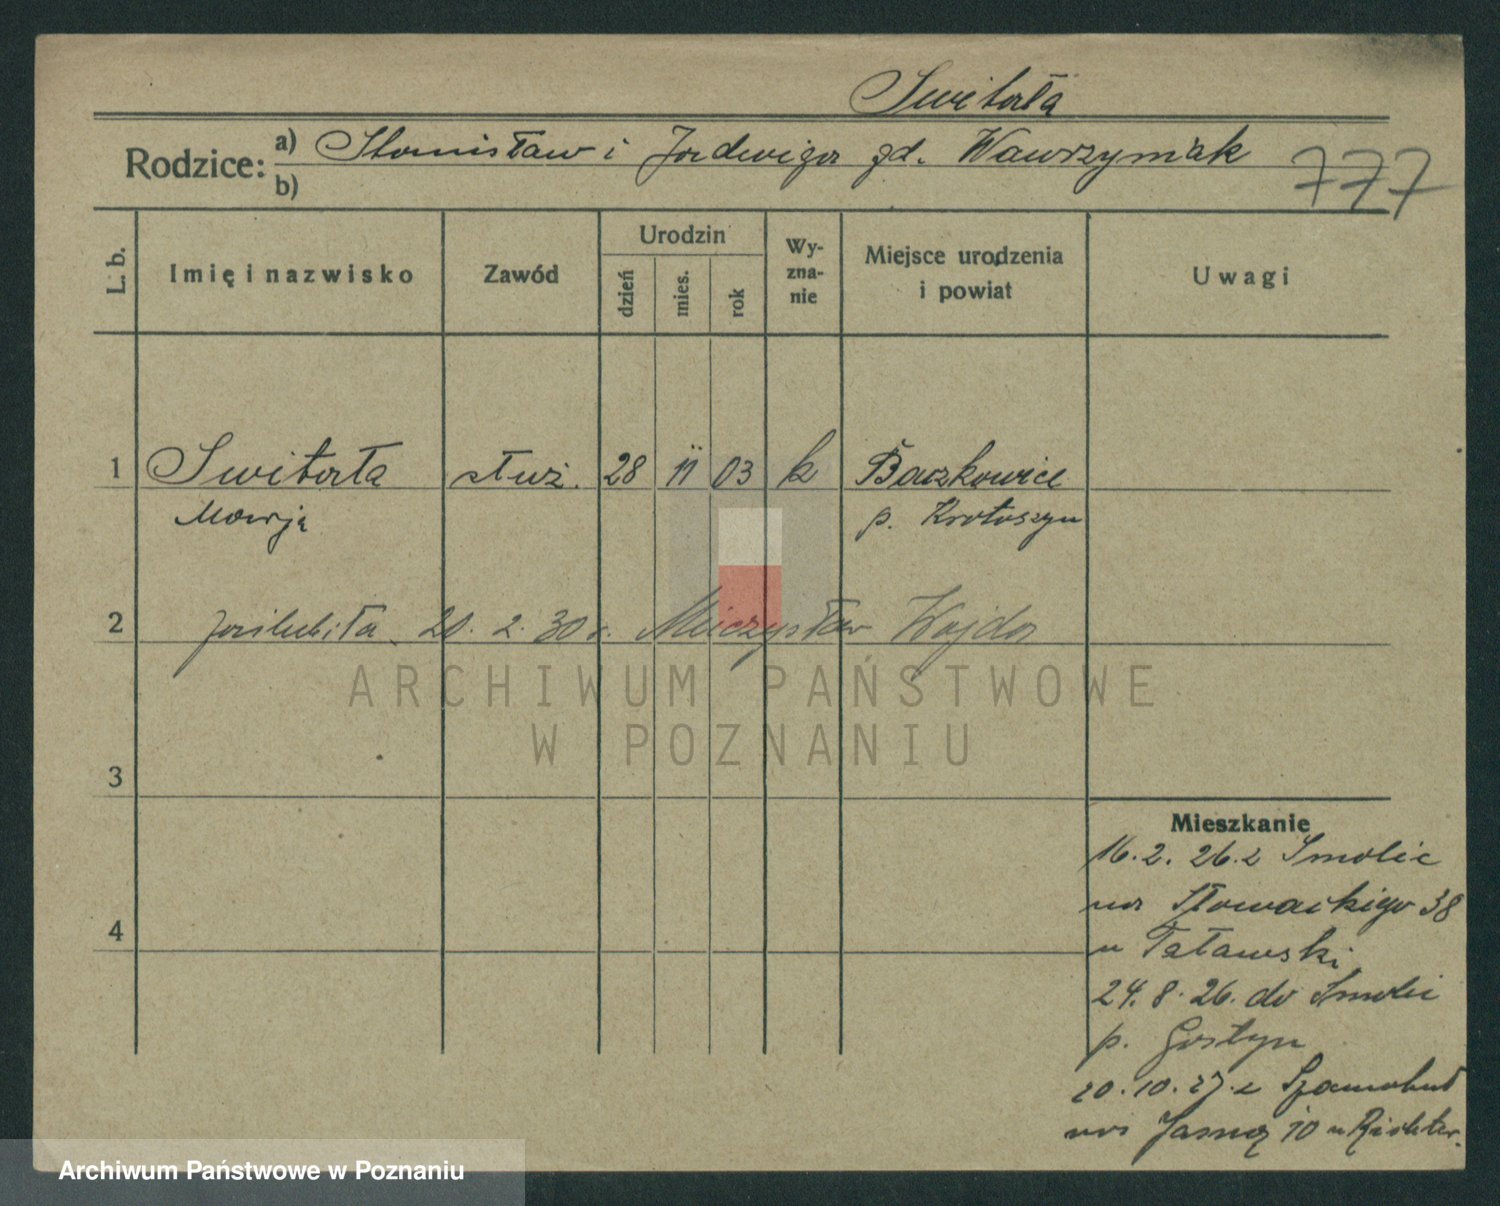 Switała
Rodzice: a) Stanisław i Jadwiga zd. Wawrzyniak
b)
777
L. b.
Imię i nazwisko
Zawód
Urodzin
dzień
mies.
rok
Wy-
zna-
nie
Miejsce urodzenia
i powiat
Uwagi
1 Switała służ. 28 11 03 k Baszkowice
Marja p. Krotoszyn
2 poślubiła 20. 2. 30 r. Mieczysław Wojda
ARCHIWUM PAŃSTWOWE
W POZNANIU
3
Mieszkanie
16. 2. 26. z Smolic
na Słowackiego 38
4
u Tatawski
24. 8. 26. do Smolic
p. Gostyn
20. 10. 27. z Szamotuł
na Jasną 10 u Richter.
Archiwum Państwowe w Poznaniu